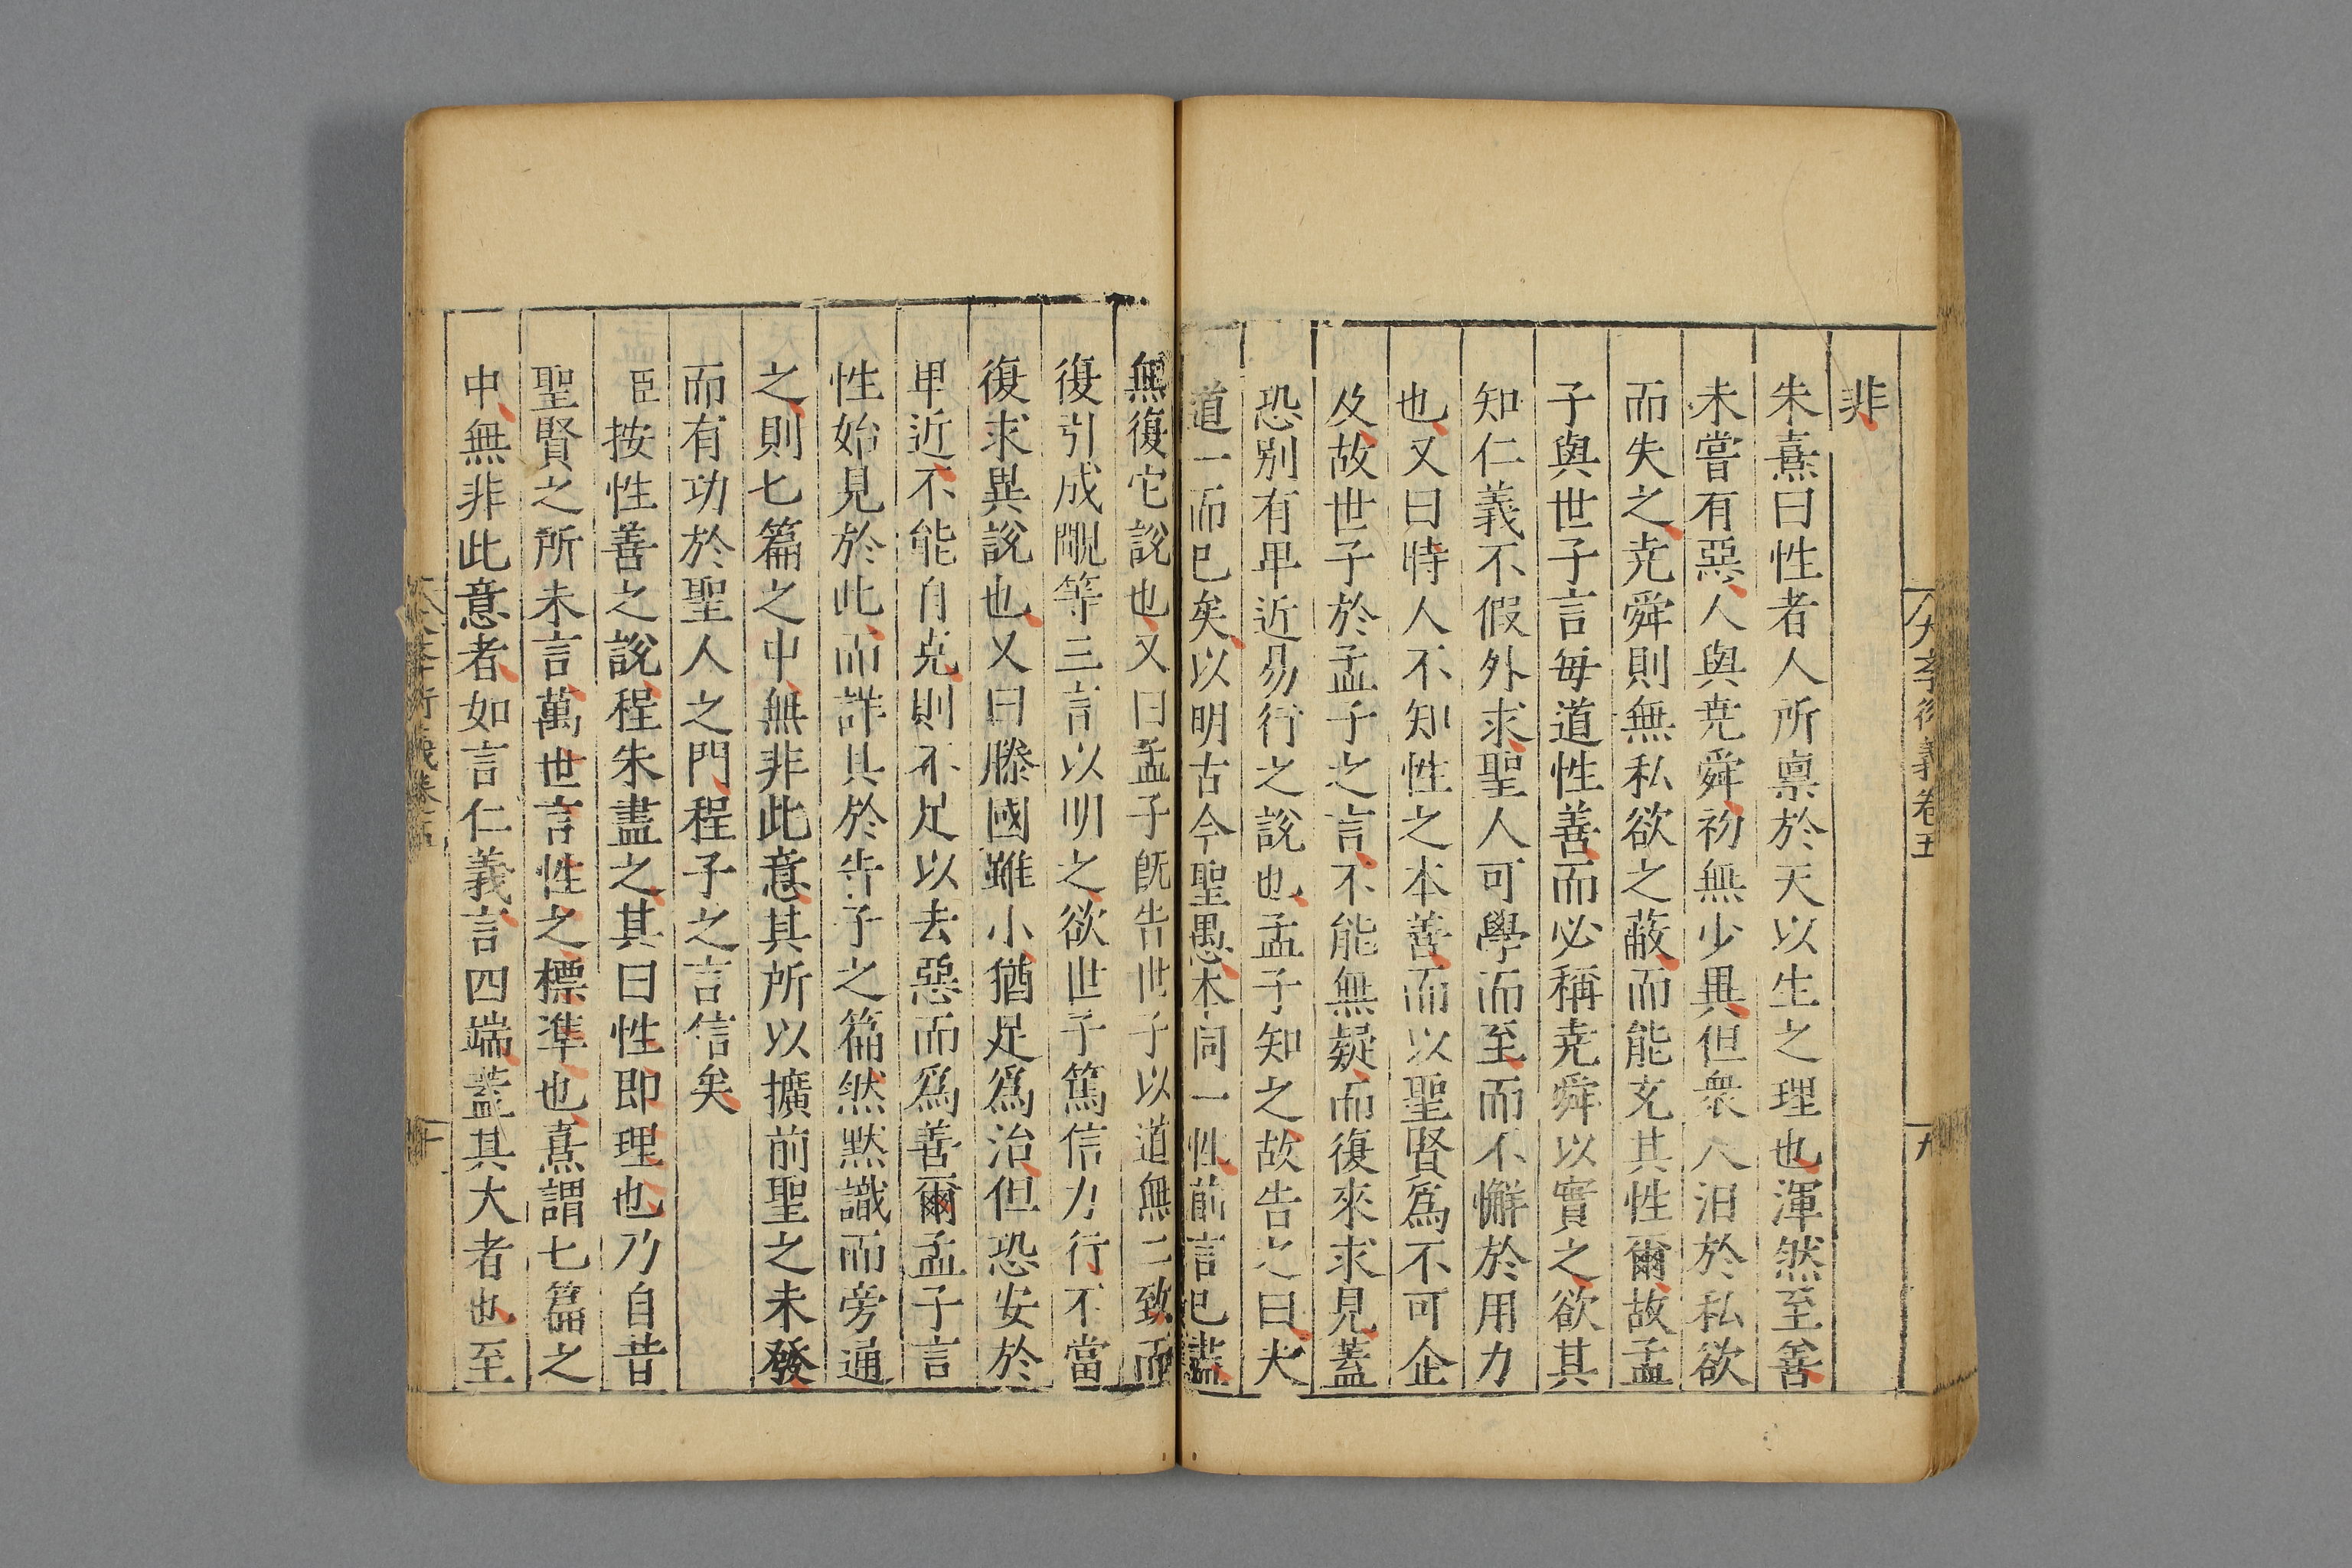 大學衍義卷五
九
非
朱熹曰性者人所禀於天以生之理也渾然至善
未嘗有惡人與尭舜初無少異但衆人汨於私欲
而失之尭舜則無私欲之蔽而能充其性爾故孟
子與世子言每道性善而必稱尭舜以實之欲其
知仁義不假外求聖人可學而至而不懈於用力
也又曰時人不知性之本善而以聖賢爲不可企
及故世子於孟子之言不能無疑而復來求見蓋
恐别有卑近易行之說也孟子知之故告之曰夫
道一而已矣以明古今聖愚本同一性前言已盡
無復它說也又曰孟子旣告世子以道無二致而
復引成覵等三言以明之欲世子篤信力行不當
復求異說也又曰滕國雖小猶足爲治但恐安於
卑近不能自克則不足以去惡而爲善爾孟子言
性始見於此而詳具於告子之篇然黙識而旁通
之則七篇之中無非此意其所以擴前聖之未發
而有功於聖人之門程子之言信矣
臣按性善之說程朱盡之其曰性即理也乃自昔
聖賢之所未言萬世言性之標準也熹謂七篇之
中無非此意者如言仁義言四端蓋其大者也至